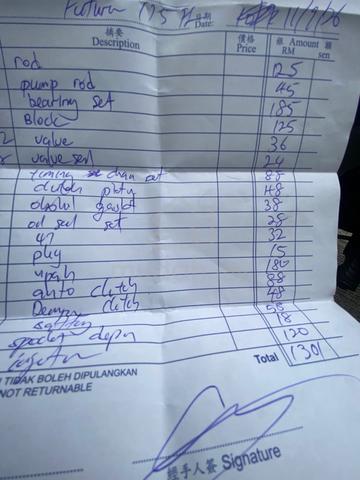 Future 125
日期 Date: 11/9/26
摘要 Description 價格 Price 銀 Amount RM sen
rod 125
pump rod 45
bearing set 185
Block 125
valve 36
valve seal 24
timing chain set 88
clutch plate 48
gasket 38
oil seal set 28
32
plug 15
upah 180
auto clutch 88
clutch 48
58
18
120
Total 1301
TIDAK BOLEH DIPULANGKAN
NOT RETURNABLE
經手人簽 Signature